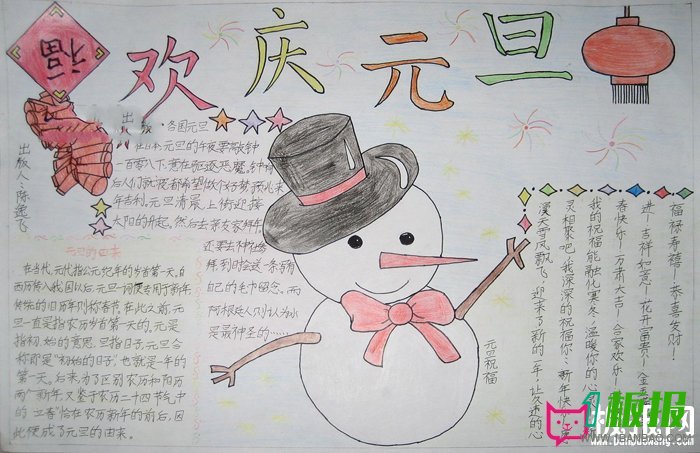 福
欢庆元旦
出版人:陈逸飞
各国元旦
日本元旦的午夜要敲钟
一百零八下,意在驱逐恶魔。钟
后人们就说都希望做个好梦预兆来
年吉利。元旦清晨,上街迎接
太阳的升起,然后去亲友家拜年
还要去神社
拜到时会送一条写有
自己的去向留念。而
阿根廷人则认为水
是最神圣的……
元旦的由来
在当代,元代指公元纪年的岁首第一天。自
西历传入我国以后,元旦一词便专用于新年,
传统的旧历年则称春节。在此之前,元
旦一直是指农历岁首第一天的。元是
指初、始的意思,旦指日子,元旦合
称即是“初始的日子”,也就是一年的
第一天。后来,为了区别农历和阳历
两个新年,又鉴于农历二十四节气中
的“立春”恰在农历新年的前后,因
此便成了元旦的由来。
元旦祝福
福禄寿禧!恭喜发财!
进!吉祥如意!花开富贵!金
春快乐!万责大吉!合家欢乐!
我的祝福能融化寒冬,温暖你的心
灵相聚吧!我深深的祝福你:新年快
漫天雪风飘飞,迎来了新的一年,让久违的心
板报
WWW.1BANBAO.COM